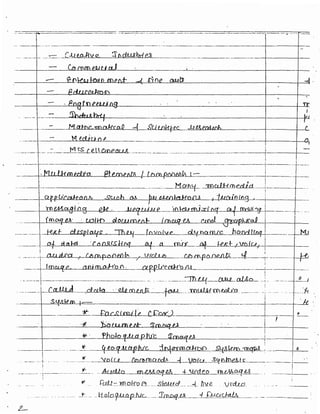 — Creative Industries
— Commercial
— Entertainment & Fine arts
— Education
— Engineering
— Industry
— Mathematical & Scientific research
— Medicine
— Miscellaneous
Multimedia Elements / Components :—
Many multimedia
applications such as presentations, training,
messaging etc. require intermixing of
images with document images and graphical
text displays. They involve dynamic handling
of data consisting of a mix of text, voice,
audio, components, video components &
image animation applications.
They are also
called data elements for multimedia
system :—
* Facsimile (Fax)
* Document Images
* Photographic Images
* Geographic Information System maps
* Voice commands & voice synthesis
* Audio messages & video messages
* Full-motion stored & live video
* Holographic Images & Fractals